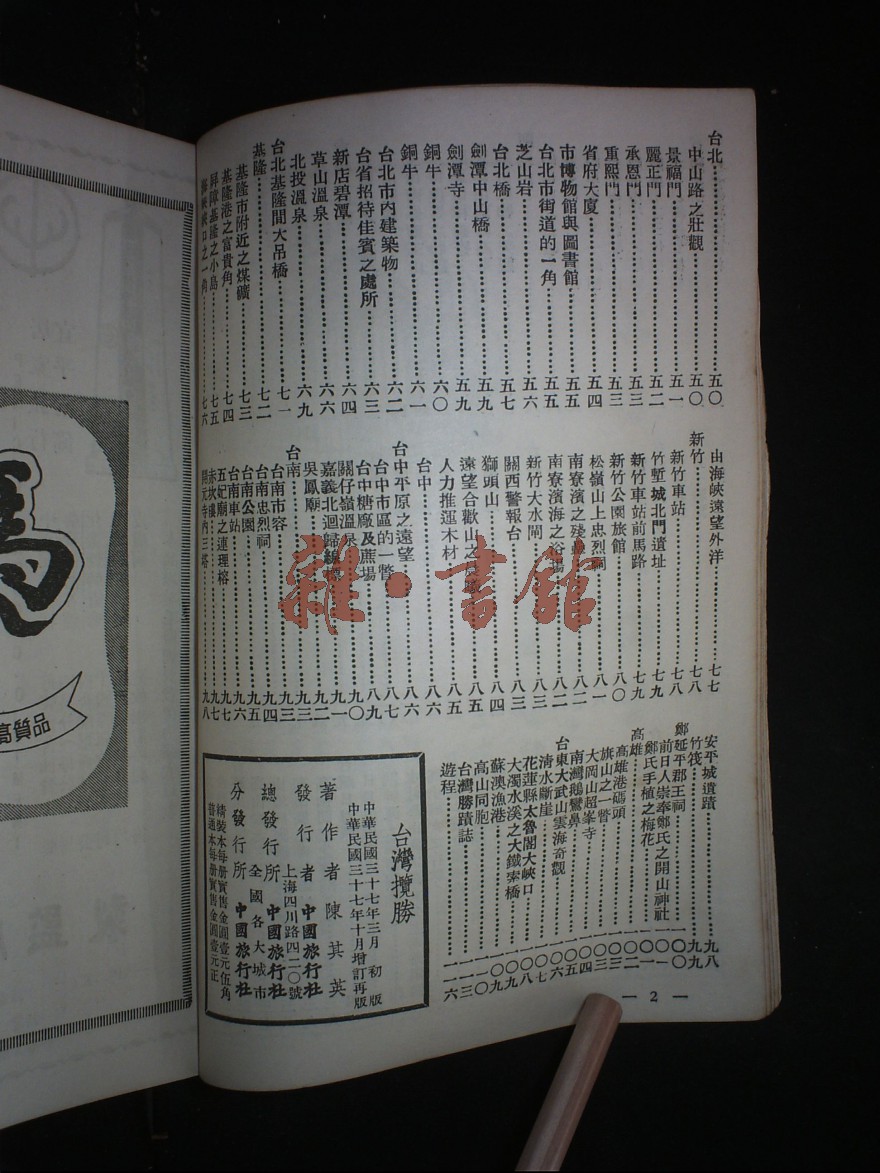 台北…五〇
中山路之壯觀…五〇
景福門…五一
麗正門…五二
承恩門…五三
重熙門…五三
省府大廈…五四
市博物館與圖書館…五五
台北市街道的一角…五五
芝山岩…五六
台北橋…五七
劍潭中山橋…五九
劍潭寺…五九
銅牛…六〇
銅牛…六一
台北市內建築物…六二
台省招待佳賓之處所…六三
新店碧潭…六四
草山溫泉…六六
北投溫泉…六九
台北基隆間大吊橋…七一
基隆…七二
基隆市附近之煤礦…七三
基隆港之富貴角…七四
屏障基隆之小島…七五
海峽峽口之一角…七六
由海峽遠望外洋…七七
新竹…七八
新竹車站…七八
竹塹城北門遺址…七九
新竹車站前馬路…七九
新竹公園旅館…八〇
松嶺山上忠烈祠…八一
南寮濱海之殘壘…八二
南寮濱海之浴場…八二
新竹大水閘…八三
關西警報台…八三
獅頭山…八四
遠望合歡山之
人力推運木材…八五
台中…八六
台中平原之遠望…八六
台中市區的一瞥…八七
台中糖廠及蔗場…八九
關仔嶺溫泉…九〇
嘉義北迴歸線標…九一
吳鳳廟…九二
台南…九三
台南市容…九三
台南忠烈祠…九四
台南公園…九五
台南車站…九六
五妃廟之連理榕…九七
赤坎樓…九七
開元寺內三塔…九八
安平城遺蹟…九八
竹筏…九九
鄭延平郡王祠…一〇〇
前日人崇奉鄭氏之開山神社
鄭氏手植之梅花…一〇一
高雄
高雄港碼頭…一〇二
旗山之一瞥…一〇三
大岡山超峯寺…一〇四
南灣鵝鸞鼻…一〇五
台東大武山雲海奇觀…一〇六
清水斷崖…一〇六
花蓮縣太魯閣大峽口…一〇七
大濁水溪之大鐵索橋…一〇八
蘇澳漁港…一〇九
高山同胞…一一〇
台灣勝蹟誌…一一三
遊程…一一六
台灣攬勝
中華民國三十七年三月初版
中華民國三十七年十月增訂再版
著作者 陳其英
發行者 中國旅行社
上海四川路四二〇號
總發行所 中國旅行社
全國各大城市
分發行所 中國旅行社
精裝本每册實售金圓壹元伍角
普通本每册實售金圓壹元正
— 2 —
雜·書館
馬
高質品